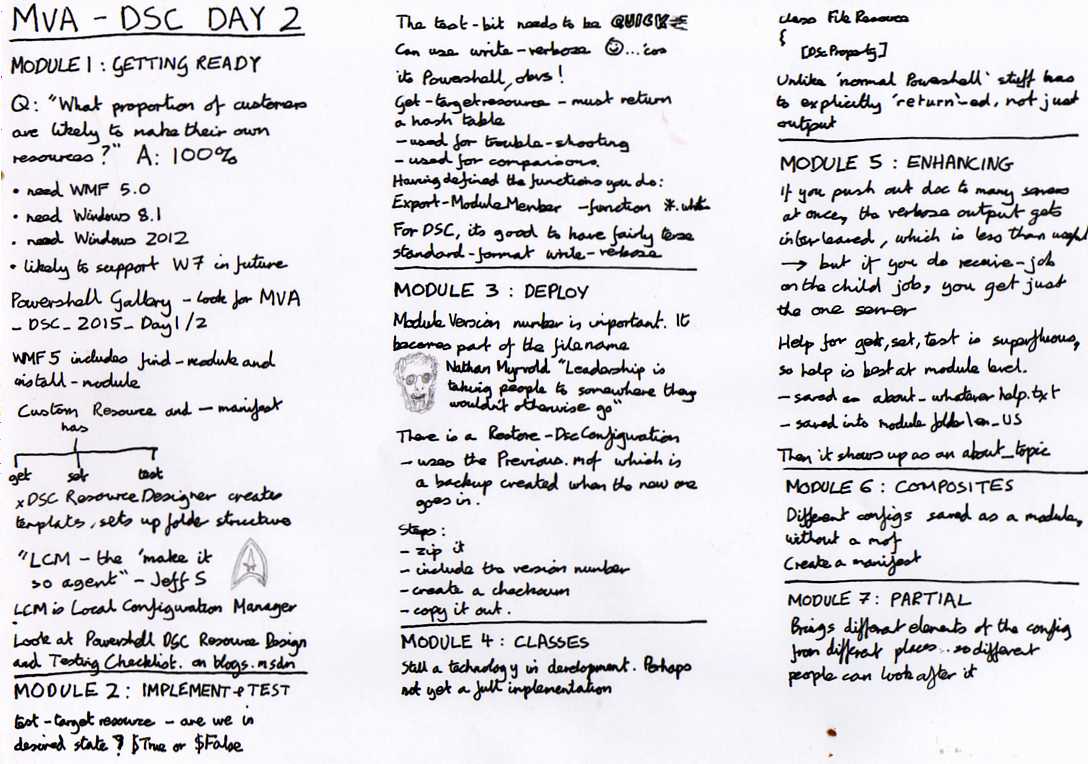 MVA - DSC DAY 2
MODULE 1 : GETTING READY
Q: "What proportion of customers
are likely to make their own
resources?" A: 100%
• need WMF 5.0
• need Windows 8.1
• need Windows 2012
• likely to support W7 in future
Powershell Gallery - look for MVA
- DSC_2015_Day1/2
WMF5 includes find-module and
install-module
Custom Resource and - manifest
has
get set test
xDSC Resource Designer creates
templates, sets up folder structure
"LCM - the 'make it
so agent" - Jeff S
LCM is Local Configuration Manager
Look at Powershell DSC Resource Design
and Testing Checklist. on blogs.msdn
MODULE 2 : IMPLEMENT & TEST
test-target resource - are we in
desired state? $True or $False
The test-bit needs to be QUICK
Can use write-verbose ☺...'cos
its Powershell, obvs!
Get-targetresource - must return
a hash table
- used for trouble-shooting
- used for comparisons.
Having defined the functions you do:
Export-ModuleMember -function *.
For DSC, its good to have fairly terse
standard-format write-verbose
MODULE 3 : DEPLOY
Module Version number is important. It
becomes part of the filename
Nathan Myrvold "Leadership is
taking people to somewhere they
wouldn't otherwise go"
There is a Restore-DscConfiguration
- uses the Previous.mof which is
a backup created when the new one
goes in.
Steps:
- zip it
- include the version number
- create a checksum
- copy it out.
MODULE 4 : CLASSES
Still a technology in development. Perhaps
not yet a full implementation
class FileResource
{
[DscProperty]
Unlike 'normal Powershell' stuff has
to explicitly 'return'-ed, not just
output
MODULE 5 : ENHANCING
If you push out dsc to many servers
at once, the verbose output gets
interleaved, which is less than useful
→ but if you do receive-job
on the child job, you get just
the one server
Help for get, set, test is superfluous,
so help is best at module level.
- saved as about_whatever help.txt
- saved into module folder\en_US
Then it shows up as an about_topic
MODULE 6 : COMPOSITES
Different configs saved as a module,
without a mof
Create a manifest
MODULE 7 : PARTIAL
Brings different elements of the config
from different places..so different
people can look after it